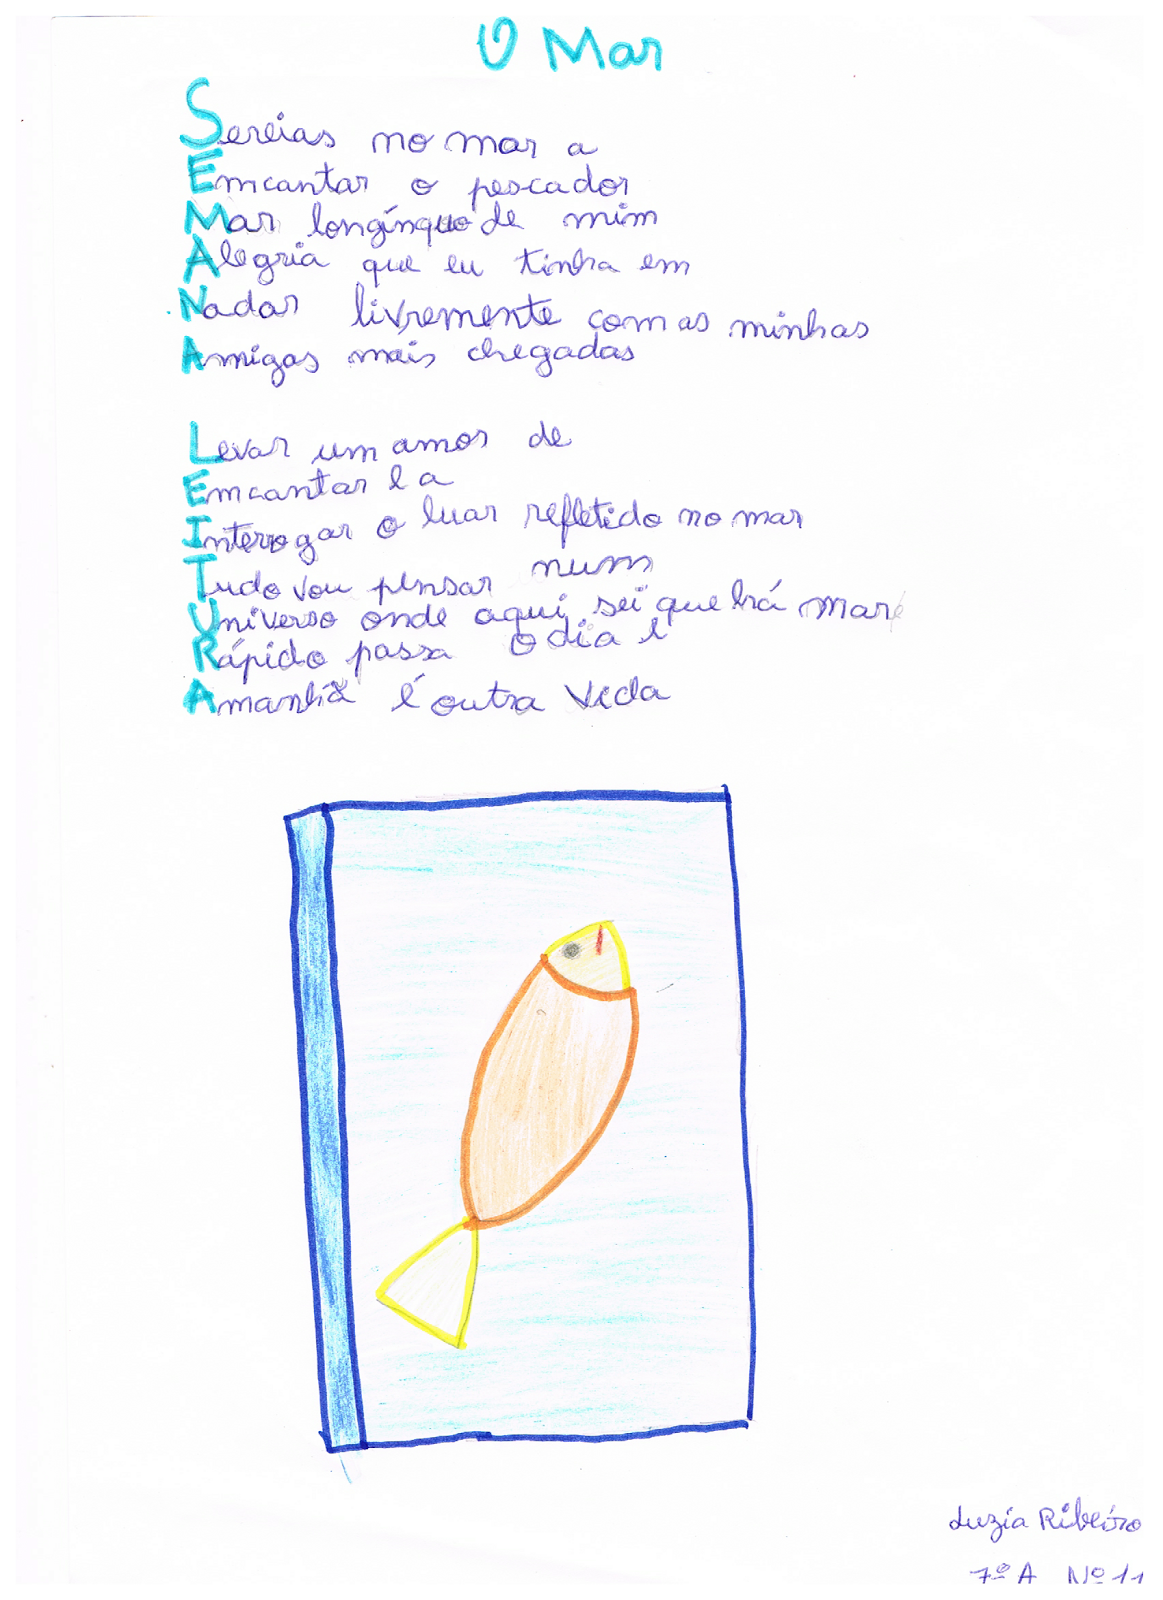 O Mar
Sereias no mar a
Emcantar o pescador
Mar longínquo de mim
Alegria que eu tinha em
Nadar livremente com as minhas
Amigas mais chegadas
Levar um amor de
Emcantar l a
Interrogar o luar refletido no mar
Tudo vou pensar num
Universo onde aqui sei que há maré
Rápido passa o dia e
Amanhã é outra vida
Luzia Ribeiro
7º A Nº 11